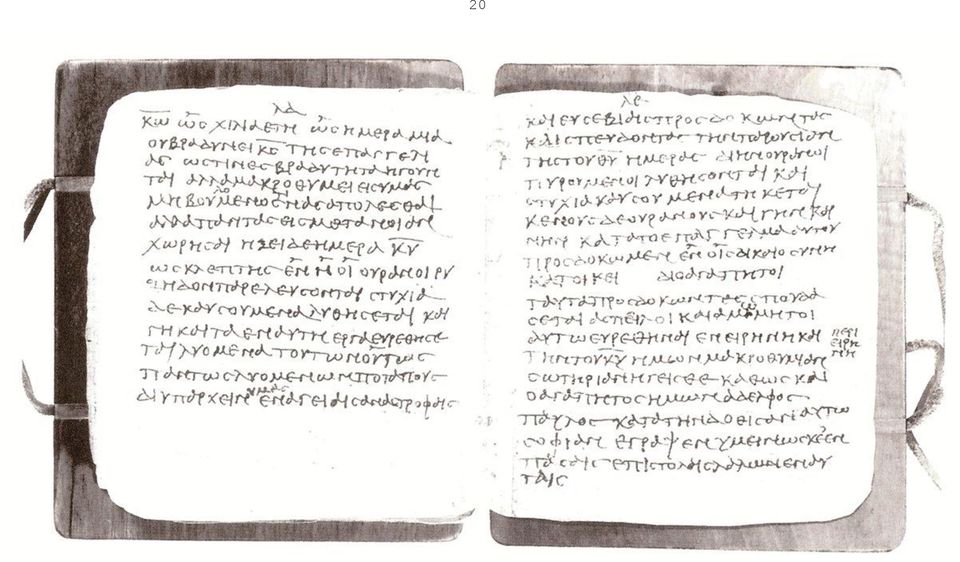 20
λδ
κω ως χιλια ετη ως ημερα μια
ου βραδυνει κς της επαγγελι
ας ως τινες βραδυτητα ηγουν
ται αλλα μακροθυμει εις υμας
μη βουλομενος τινας απολεσθαι
αλλα παντας εις μετανοιαν
χωρησαι ηξει δε ημερα κυ
ως κλεπτης εν η οι ουρανοι ρυ
ζηδον παρελευσονται στυχια
δε καυσουμενα λυθησεται και
γη και τα εν αυτη εργα ευρεθησε
ται λυομενα τουτων ουτως
παντως λυομενων ποταπους
δι υπαρχειν υμας εν αγειαις αναστροφαις
λε
και ευσεβιαις προσδοκωντας
και σπευδοντας την παρουσιαν
την του θυ ημερας δι ην ουρανοι
πυρουμενοι λυθησονται και
στυχια καυσουμενα τηκεται
κενους δε ουρανους και γην και
νην κατα το επαγγελμα αυτου
προσδοκωμεν εν οις δικαιοσυνη
κατοικει διο αγαπητοι
ταυτα προσδοκωντες σπουδα
σεται ασπιλοι και αμωμητοι
αυτω ευρεθηναι εν ειρηνη και
την του κυ ημων μακροθυμιαν
σωτηριαν ηγεισθε καθως και
ο αγαπητος ημων αδελφος
παυλος κατα την δοθισαν αυτω
σοφιαν εγραψεν υμειν ως κε εν
πασαις επιστολαις λαλων εν αυ
ταις
περι
ειρη
νη